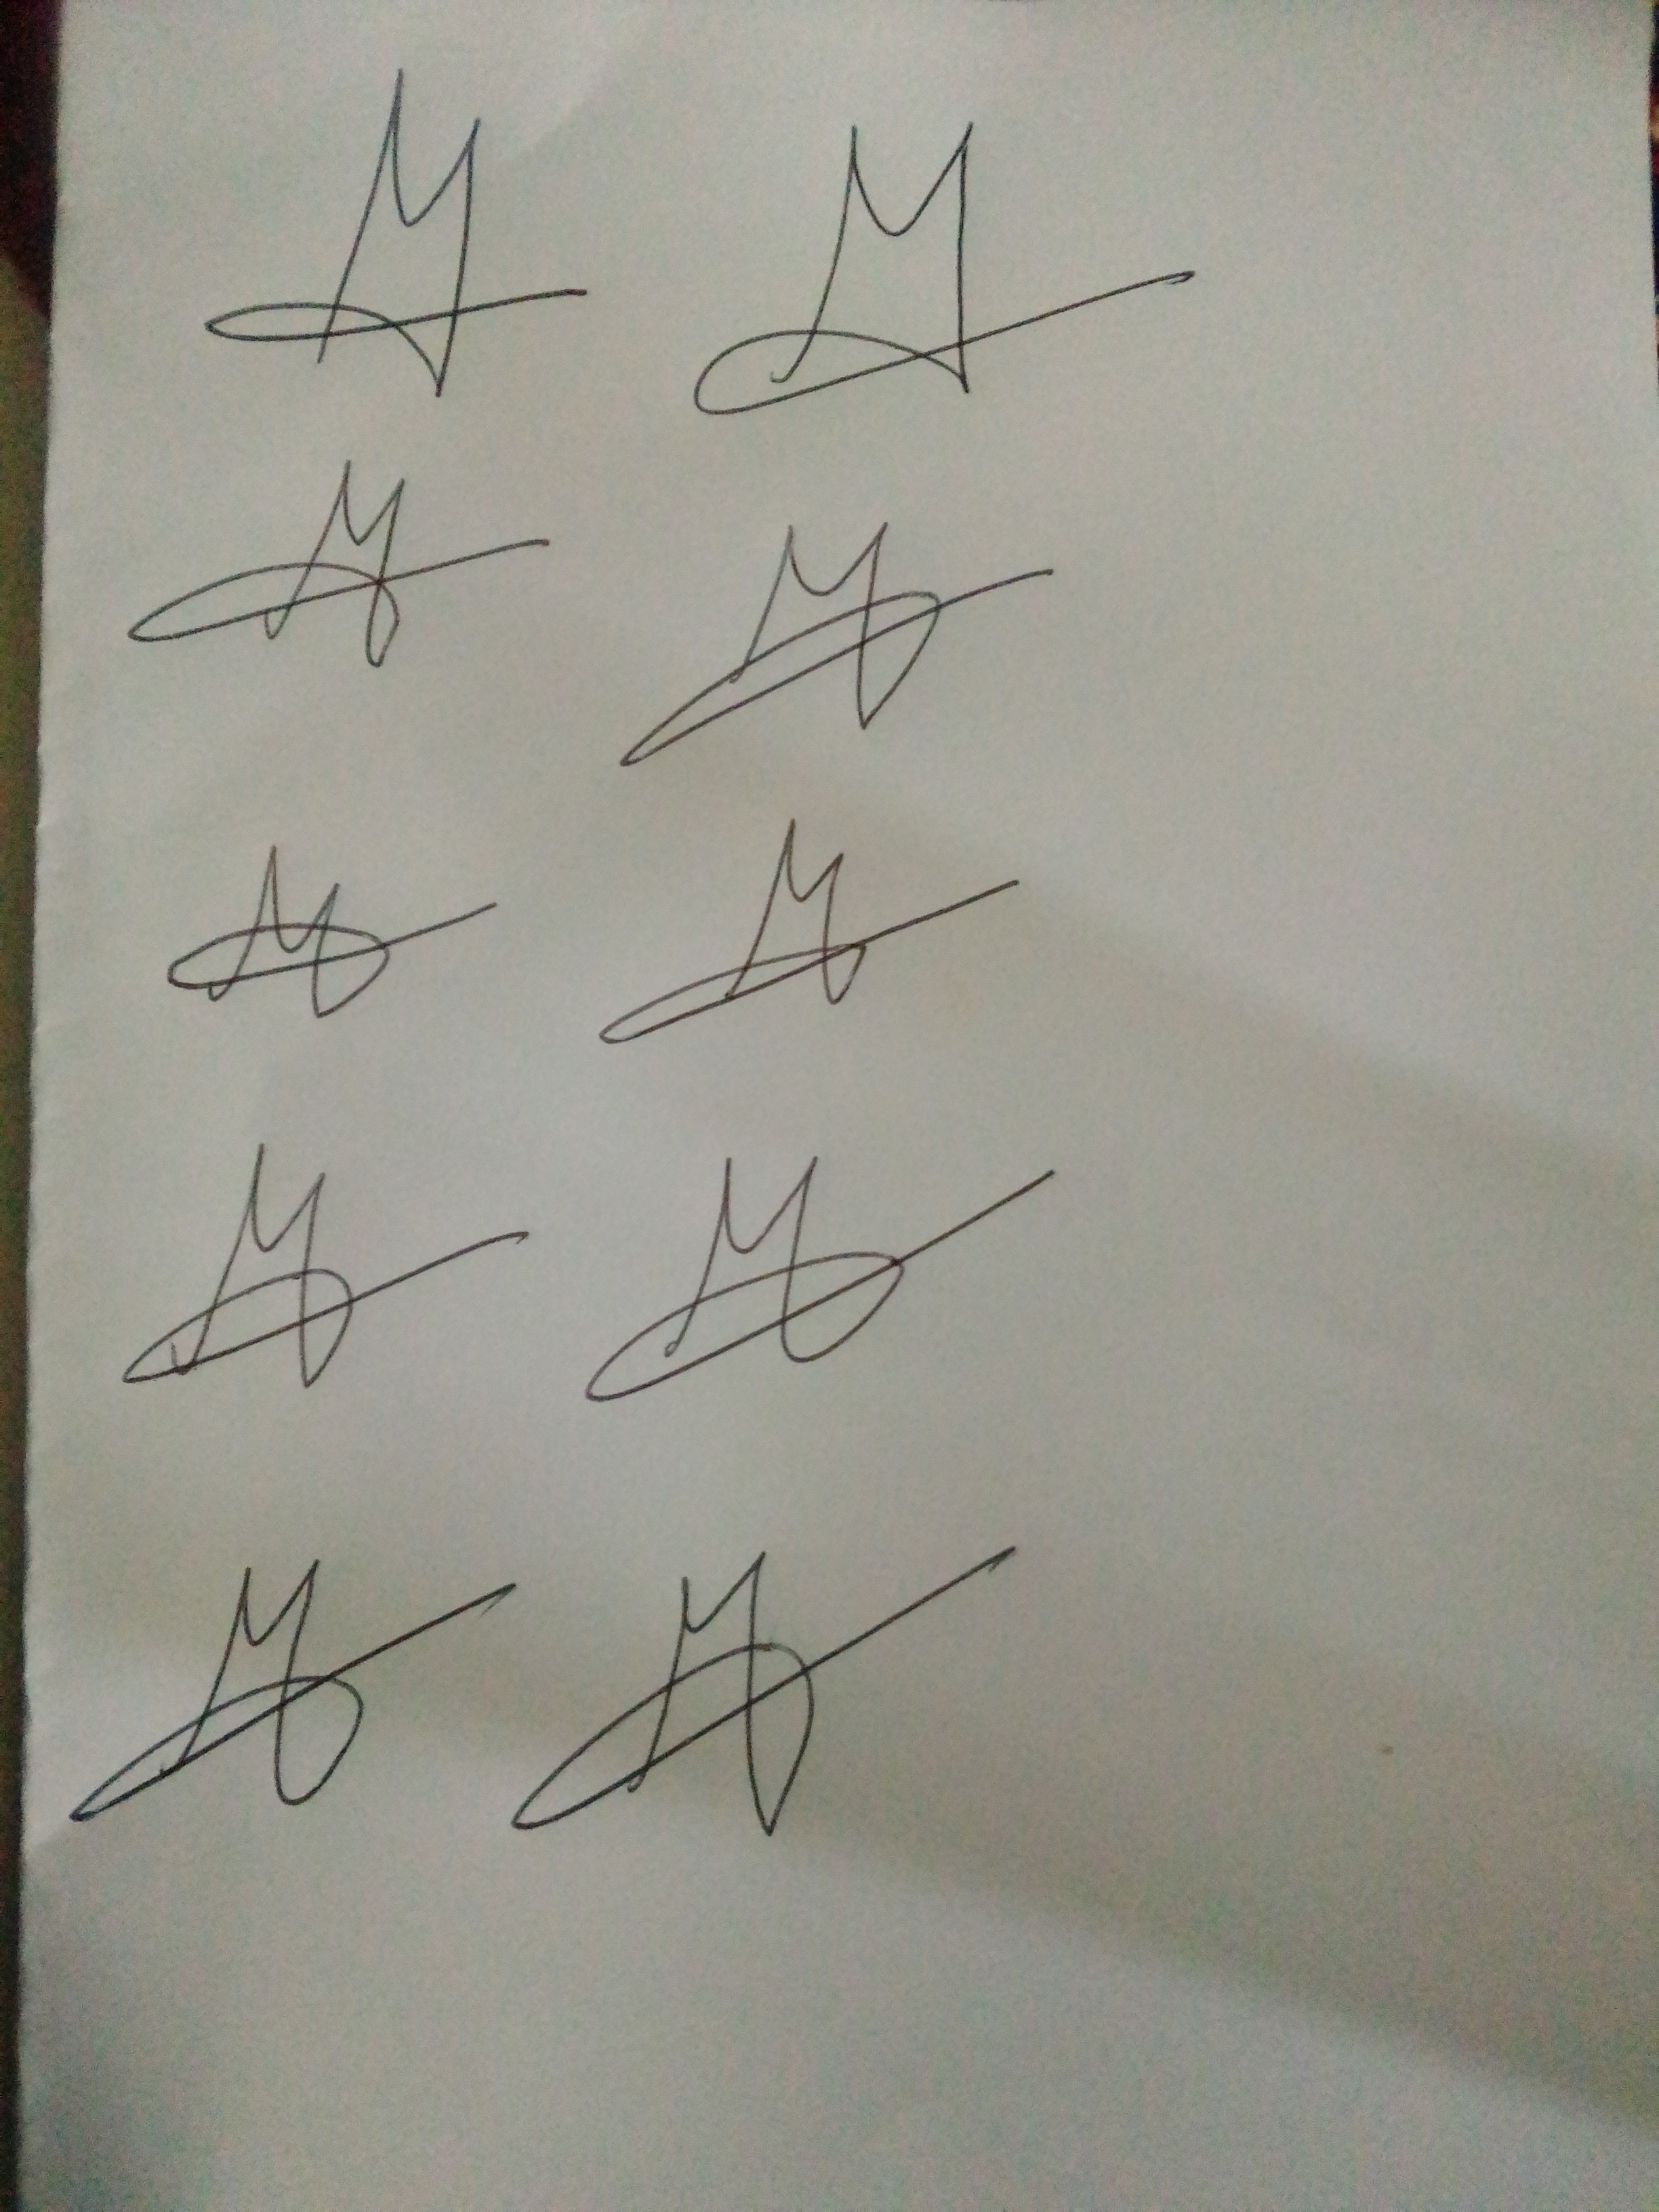 M M
M M
M M
M M
M M